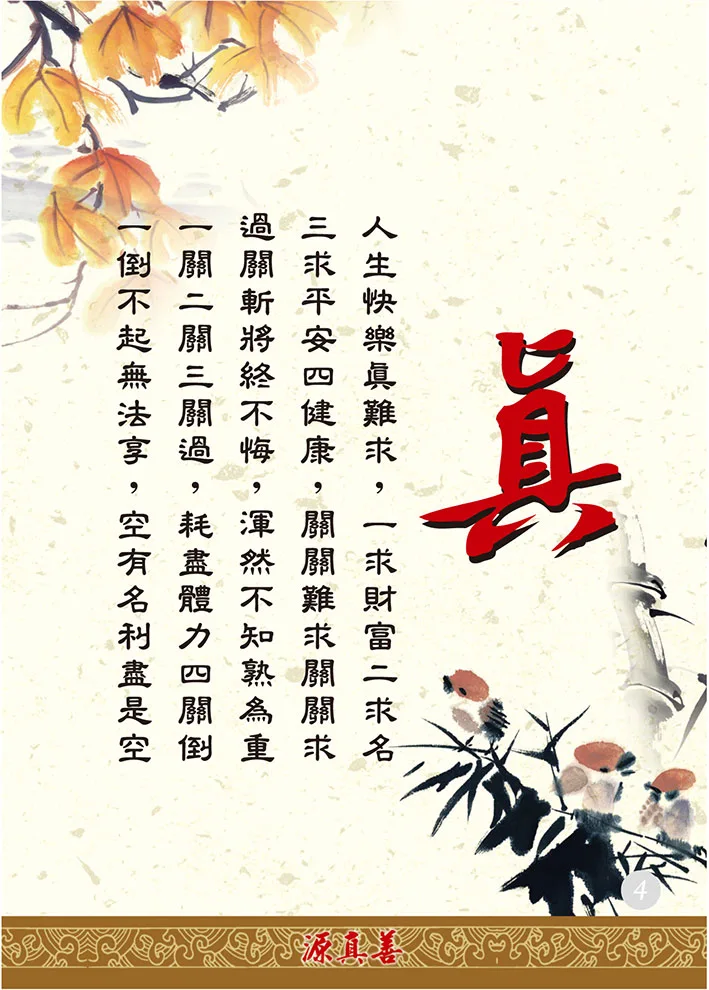 眞
人生快樂眞難求，一求財富二求名
三求平安四健康，關關難求關關求
過關斬將終不悔，渾然不知熟為重
一關二關三關過，耗盡體力四關倒
一倒不起無法享，空有名利盡是空
4
源真善